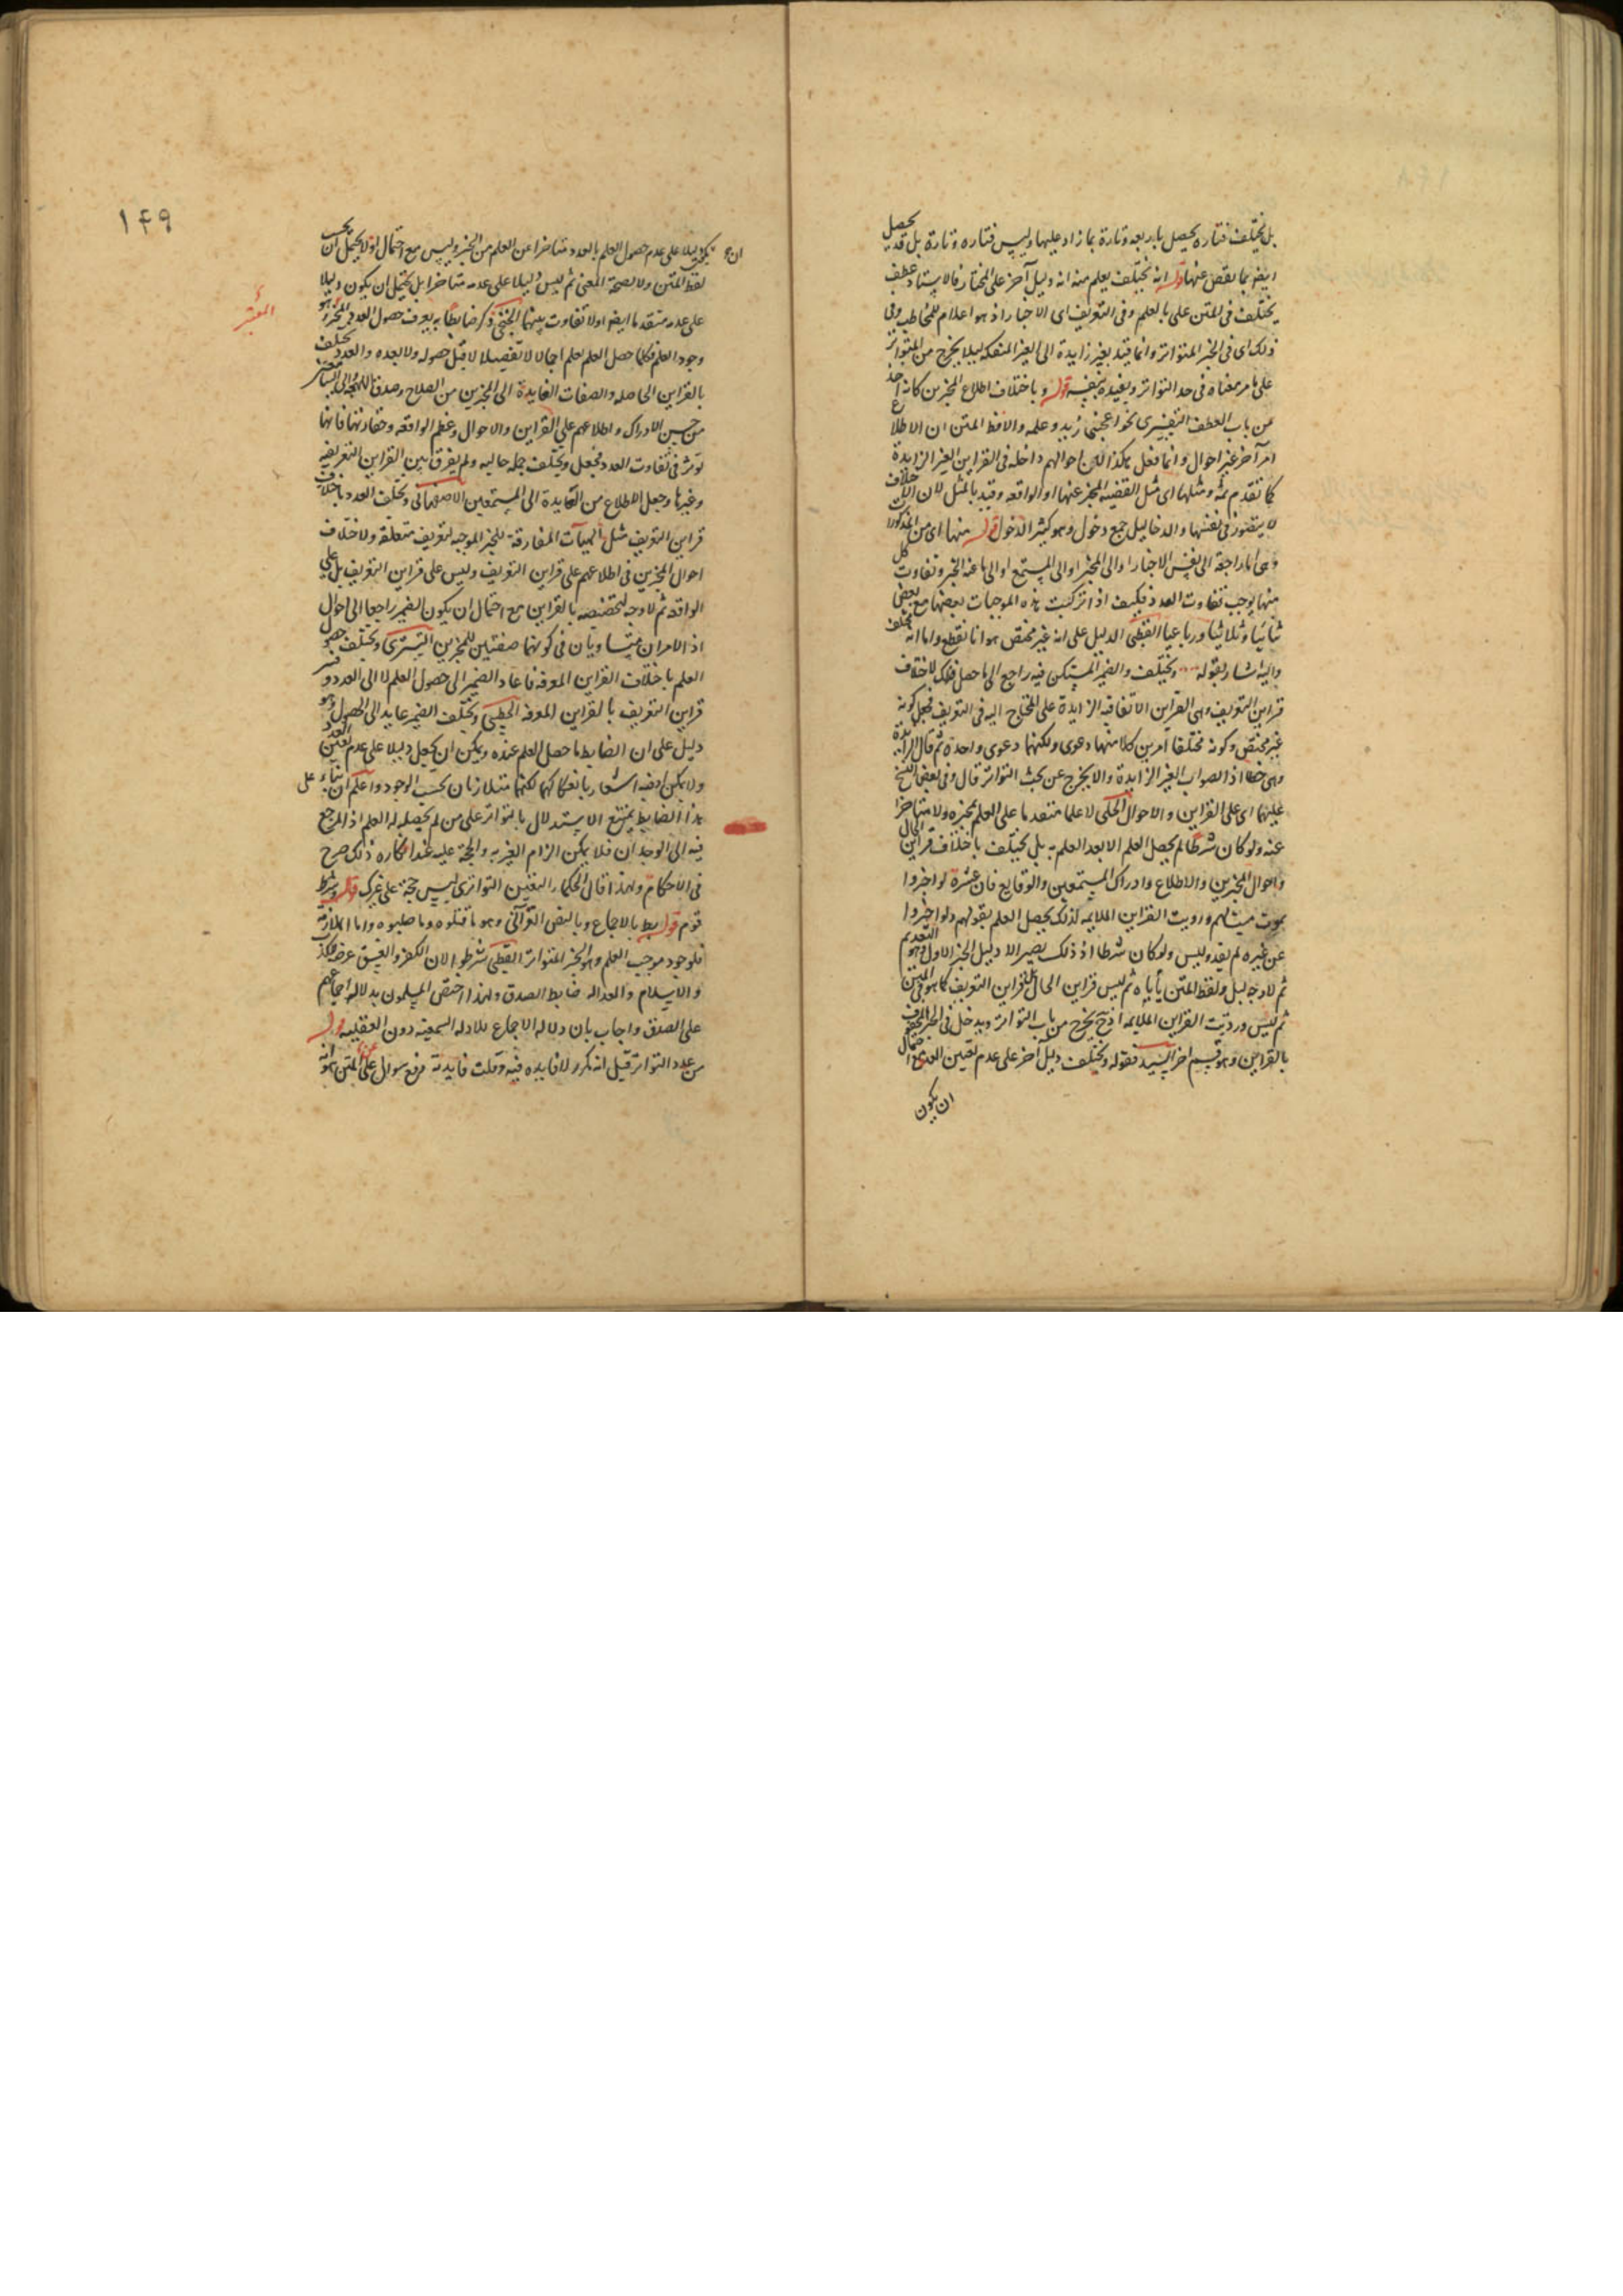 بل يختلف فتاره يحصل باربعه وتارة بما زاد عليها وليس فتاره وتارة بل قد يحصل
ايضا بما نقص عنها قوله انه يختلف يعلم منه انه دليل آخر على المختار فالاستناد عطف
يختلف في المتن على بالعلم وفي التعريف اى الاخبار اذ هو اعلام للمخاطب وفي
ذلك اى في الخبر المتواتر وانما قيد بغير زايدة الى الغير المنفكه ليلا يخرج من المتواتر
على ما مر معناه في حد التواتر ويفيده بنفسه قوله وباختلاف اطلاع المخبرين كانه اخذ
من باب العطف التفسيرى نحو اعجبنى زيد وعلمه والا فظ المتن ان الاطلاع
امر آخر غير احوال وانما فعل هكذا لان احوالهم داخله في القراين الغير الزايدة
كما تقدم ثمه ومثلها اى مثل القضيه المخبر عنها او الواقعه وقيد بالمثل لان
لا يتصور في نفسها والدخاليل جمع دخول وهو كثير الدخول قوله منها اى من المذكور
وهى اما راجعة الى نفس الاخبار او الى المخبر او الى المستمع او الى ما عنه الخبر وتفاوت كل
منها يوجب تفاوت العدد فكيف اذا تركبت هذه الموجبات بعضها مع بعض
ثنائيا وثلاثيا ورباعيا القطبى الدليل على انه غير مختص هو انا نقطع واما انه يختلف
واليه اشار بقوله ويختلف والضمير المستكن فيه راجع الى ما حصل فهلك لاختلاف
قراين التعريف وهى القراين الاتفاقيه الزايدة على المحتاج اليه في التعريف فجعل كونه
غير مختص وكونه مختلفا امرين كلا منهما دعوى ولكنهما دعوى واحدة ثم قال الزايدة
وهى خطا اذ الصواب الغير الزايدة والا يخرج عن بحث التواتر قال وفي بعض النسخ
عليهما اى على القراين والاحوال الحلى لا علما متقدما على العلم بخبره ولا متاخرا
عنه ولو كان شرطا لم يحصل العلم الا بعد العلم به بل يختلف باختلاف قراين الحال
واحوال المخبرين والاطلاع وادراك المستمعين والوقايع فان عشرة لو اخبروا
بموت ميت لهم ورويت القراين الملايمه لذلك يحصل العلم بقولهم ولو اخبروا
عن غيره لم يفد وليس ولو كان شرطا اذ ذلك يصير الا دليل الخبر الاول وهو التقديم
ثم لا وجه لبل ولفظ المتن يأباه ثم ليس قراين الحال بل قراين التعريف كما هو في المتن
ثم ليس ورديت القراين الملايمه اذ ح يخرج من باب التواتر ويدخل في الخبر المحفوف
بالقراين وهو قسم اخر السيد فقوله ويختلف دليل آخر على عدم تعين العدد مع احتمال
ان يكون
١٤٩
ان يكون دليلا على عدم حصول العلم بالعدد متاخرا عن العلم من الخبر وليس مع احتمال اذ لا يحتمل ان بحسب
لفظ المتن ولا بصحة المعنى ثم ليس دليلا على عدمه متاخرا بل يحتمل ان يكون دليلا
على عدمه متقدما ايضا اذ لا تفاوت بينهما الخنجى ذكر ضابطا به يعرف حصول العدد وهو
المعتبر
وجود العلم فكلما حصل العلم بعلم اجمالا لا تفصيلا لا قبل حصوله ولا بعده والعدد يختلف
بالقراين الحاصله والصفات العايدة الى المخبرين من الصلاح وصدق اللهجه والى السامعين
من حسن الادراك واطلاعهم على القراين والاحوال وعظم الواقعه وحقارتها فانها
توثر في تفاوت العدد فجعل ويختلف جمله حاليه ولم يفرق بين القراين التعريفيه
وغيرها وجعل الاطلاع من العايدة الى المستمعين الاصفهانى ويختلف العدد باختلاف
قراين التعريف مثل الهيآت المقارنة للخبر الموجبه لتعريف متعلقه ولاختلاف
احوال المخبرين في اطلاعهم على قراين التعريف وليس على قراين التعريف بل على
الواقعه ثم لا وجه لتخصيصه بالقراين مع احتمال ان يكون الضمير راجعا الى احوال
اذ الامران متساويان في كونهما صفتين للمخبرين التسترى ويختلف حصول
العلم باختلاف القراين المعرفه فاعاد الضمير الى حصول العلم لا الى العدد وفسر
قراين التعريف بالقراين المعرفه الخطيبى ويختلف الضمير عايد الى الحصول وهو
دليل على ان الضابط ما حصل العلم عنده ويمكن ان يجعل دليلا على عدم تعين العدد
ولا يمكن اذ فيه اشعار بانفكاكهما لكنهما متلازمان بحسب الوجود واعلم ان بناء على
هذا الضابط يمتنع الاستدلال بالتواتر على من لم يحصل له العلم اذ المرجع
فيه الى الوجدان فلا يمكن الزام الغير به والحجة عليه عند انكاره ذلك صرح
في الاحكام ولهذا قال الحكماء اليقين التواترى ليس حجة على غيرك قوله وشرط
قوم قوله بط بالاجماع وبالنص القرآنى وهو ما قتلوه وما صلبوه واما الملازمة
فلوجود موجب العلم وهو الخبر المتواتر القطبى شرطوا لان الكفر والفسق عرضه للكذب
والاسلام والعداله ضابط الصدق ولهذا اختص المسلمون بدلاله اجماعهم
على الصدق واجاب بان دلاله الاجماع بالادله السمعيه دون العقليه قوله
من عدد التواتر قيل انه مكرر لا فايده فيه وقلت فايدته رفع سوال على المتن هو انه